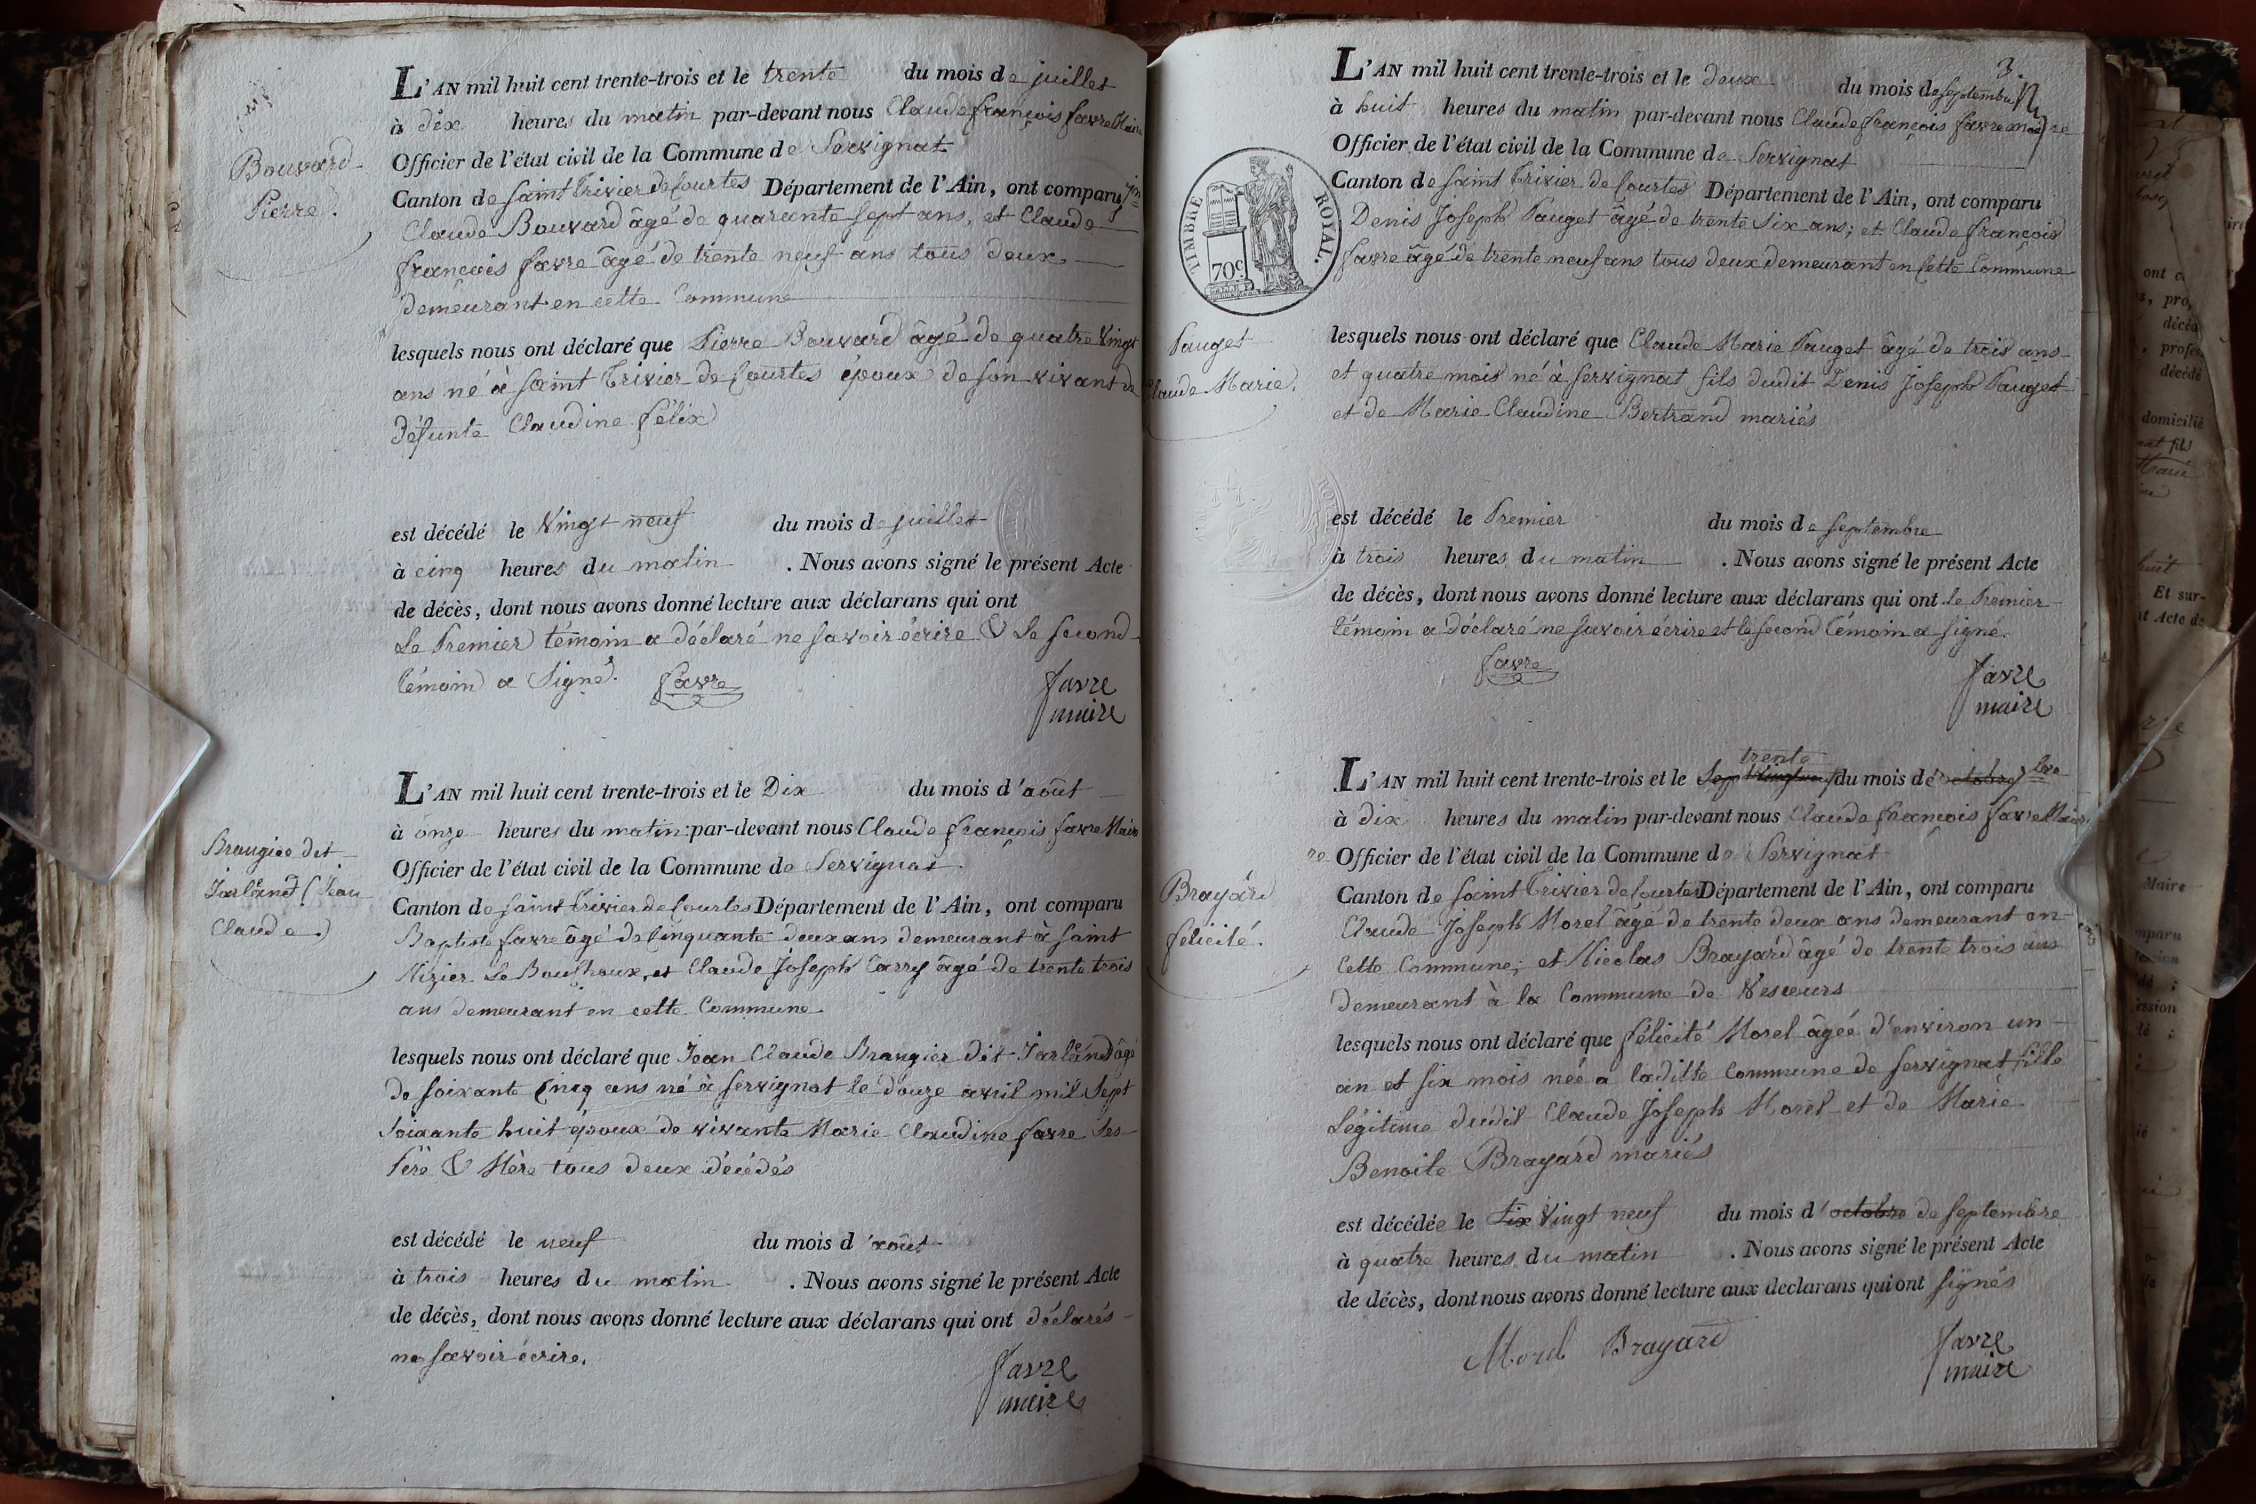 Bouvard
Pierre.
L'AN mil huit cent trente-trois et le trente du mois de juillet
à dix heures du matin par-devant nous Claude françois favre Maire
Officier de l'état civil de la Commune de Servignat
Canton de Saint Trivier de Courtes Département de l'Ain, ont comparu
Claude Bouvard âgé de quarante sept ans, et Claude
françois favre âgé de trente neuf ans tous deux
demeurant en cette Commune
lesquels nous ont déclaré que Pierre Bouvard âgé de quatre Vingt
ans né à Saint Trivier de Courtes époux de son vivant de
défunte Claudine félix
est décédé le Vingt neuf du mois de juillet
à cinq heures du matin . Nous avons signé le présent Acte
de décès, dont nous avons donné lecture aux déclarans qui ont
Le Premier témoin a déclaré ne savoir écrire & Le Second
témoin a Signé. favre
favre
maire
Brangier dit
Jarland (Jean
Claude.)
L'AN mil huit cent trente-trois et le Dix du mois d'août
à onze heures du matin par-devant nous Claude françois favre Maire
Officier de l'état civil de la Commune de Servignat
Canton de Saint Trivier de Courtes Département de l'Ain, ont comparu
Baptiste favre âgé de Cinquante deux ans demeurant à Saint
Nizier Le Bouchoux, et Claude Joseph Carry âgé de trente trois
ans demeurant en cette Commune.
lesquels nous ont déclaré que Jean Claude Brangier dit âgé
de soixante Cinq ans né à Servignat le douze avril mil Sept
Soixante huit époux de vivante Marie Claudine favre Ses
Père & Mère tous deux décédés
est décédé le neuf du mois d'août
à trois heures du matin . Nous avons signé le présent Acte
de décès, dont nous avons donné lecture aux déclarans qui ont déclarés
ne savoir écrire.
favre
maire
3.
L'AN mil huit cent trente-trois et le deux du mois de septembre
à huit heures du matin par-devant nous Claude françois favre maire
Officier de l'état civil de la Commune de Servignat
Canton de Saint Trivier de Courtes Département de l'Ain, ont comparu
Denis Joseph Pauget âgé de trente Six ans; et Claude françois
favre âgé de trente neuf ans tous deux demeurant en Cette Commune
TIMBRE ROYAL.
70c
Pauget
Claude Marie.
lesquels nous ont déclaré que Claude Marie Pauget âgé de trois ans
et quatre mois né à Servignat fils dudit Denis Joseph Pauget
et de Marie Claudine Bertrand mariés
est décédé le Premier du mois de Septembre
à trois heures du matin . Nous avons signé le présent Acte
de décès, dont nous avons donné lecture aux déclarans qui ont Le Premier
témoin a déclaré ne savoir écrire et le second témoin a signé.
favre
favre
maire
Brayard
félicité.
trente
L'AN mil huit cent trente-trois et le Sept Vingt neuf du mois de octobre 7bre
à dix heures du matin par-devant nous Claude françois favre Maire
Officier de l'état civil de la Commune de Servignat
Canton de Saint Trivier de Courtes Département de l'Ain, ont comparu
Claude Joseph Morel âgé de trente deux ans demeurant en
Cette Commune; et Nicolas Brayard âgé de trente trois ans
demeurant à la Commune de Vescours
lesquels nous ont déclaré que félicité Morel âgée d'environ un
an et six mois née a laditte Commune de Servignat fille
Légitime dudit Claude Joseph Morel et de Marie
Benoite Brayard mariés
est décédée le Six Vingt neuf du mois d'octobre de septembre
à quatre heures du matin . Nous avons signé le présent Acte
de décès, dont nous avons donné lecture aux declarans qui ont signés
Morel Brayard
favre
maire